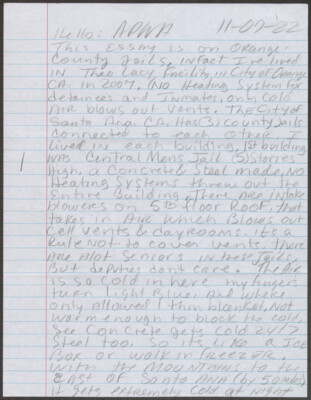 Hello: APWA 11-07-22
This Essay is on Orange-
County Jails, infact I've lived
IN Theo Lacy, Facility, in City of Orange
CA. in 2007. (No Heating System for
detainees and Inmates, only Cold
Air blows out Vents. The City of
Santa Ana, CA. Has (3) county Jails
Connected to each other. I
lived in each building. 1st building
was Central Mens Jail (5) Stories
high, a Concrete & Steel made, No
Heating Systems threw out the
Entire Building, There are intake
blowers on 5th floor Roof, that
takes in Air which Blows out
Cell Vents & dayrooms. it's a
Rule Not to cover vents. there
are Alot Seniors in these Jails,
But deputies dont care. The Air
is so Cold in here my fingers
turn light Blue. And where
only allowed 1 thin blanket, Not
warm enough to block the Cold,
See Concrete gets Cold 24/7
Steel too. So its like a Ice
Box or walk in freezer.
With the Mountains to the
East of Santa Ana (by 50 miles)
it gets extremely Cold at Night
1